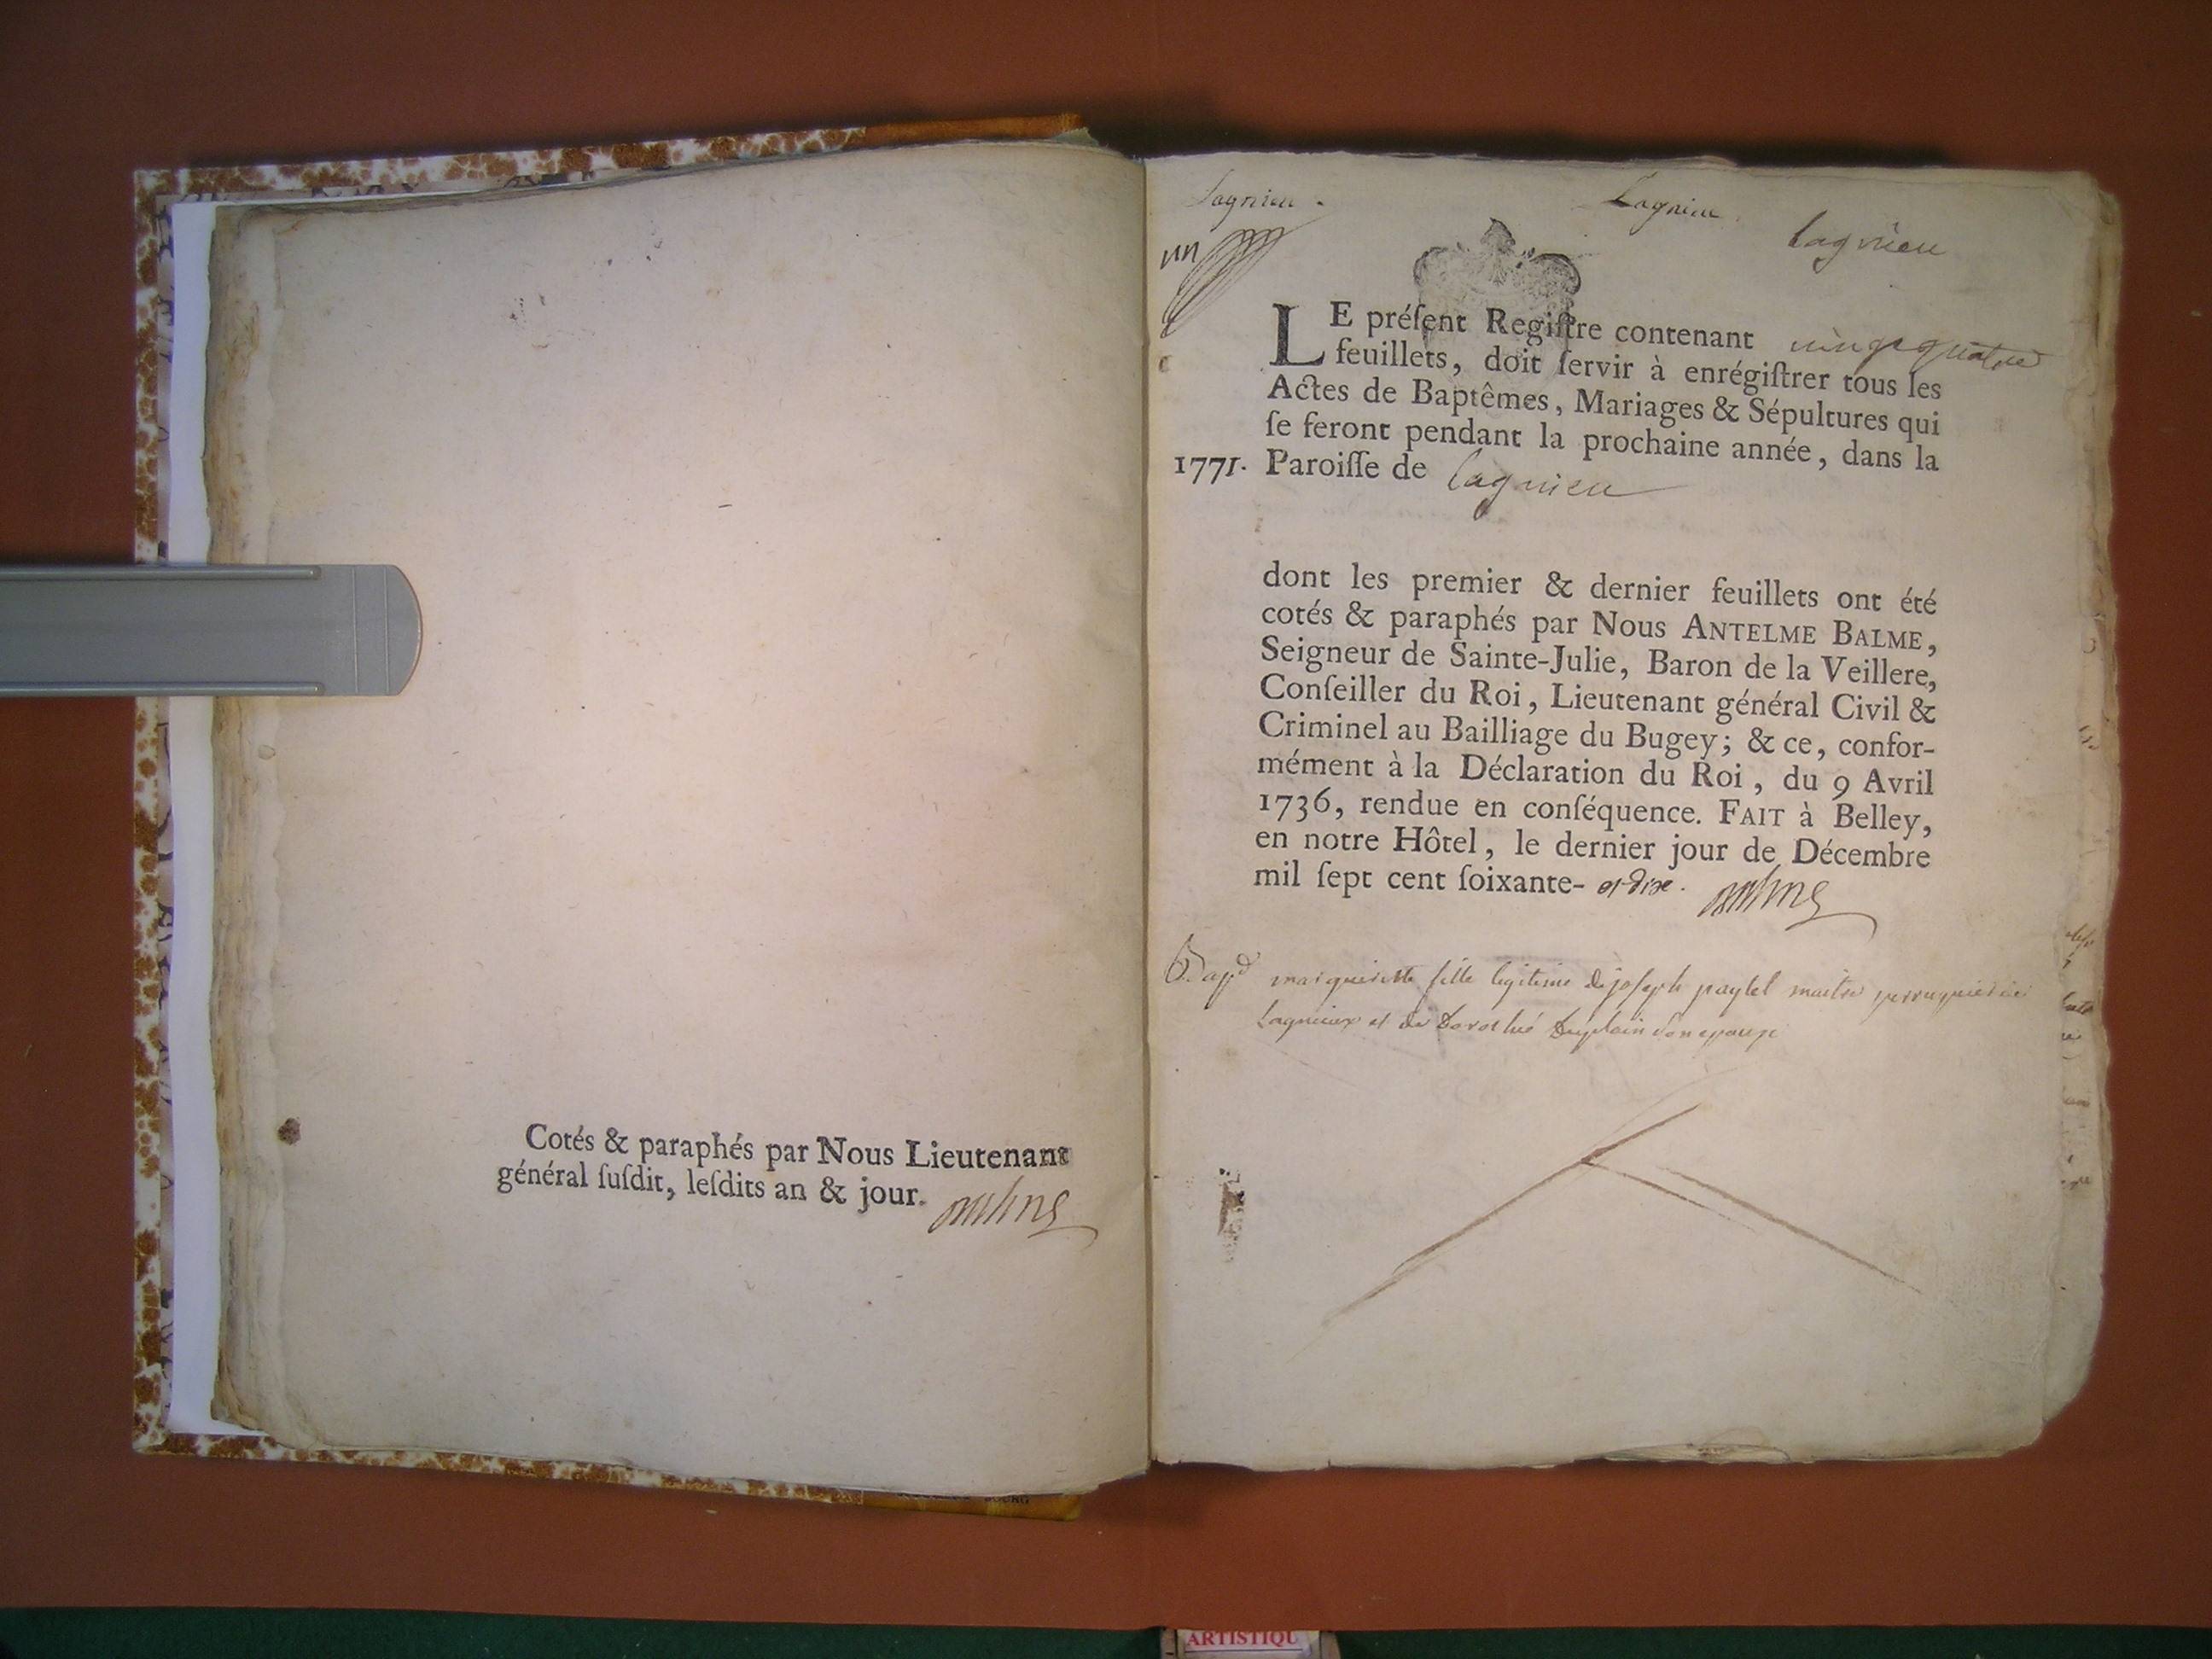 Cotés & paraphés par Nous Lieutenant
général ſuſdit, leſdits an & jour.
Lagnieu.
Lagnieu
Lagnieu
un
LE préſent Regiſtre contenant vingt quatre
feuillets, doit ſervir à enrégiſtrer tous les
Actes de Baptêmes, Mariages & Sépultures qui
ſe feront pendant la prochaine année, dans la
1771. Paroiſſe de Lagnieu
dont les premier & dernier feuillets ont été
cotés & paraphés par Nous ANTELME BALME,
Seigneur de Sainte-Julie, Baron de la Veillere,
Conſeiller du Roi, Lieutenant général Civil &
Criminel au Bailliage du Bugey; & ce, confor-
mément à la Déclaration du Roi, du 9 Avril
1736, rendue en conſéquence. FAIT à Belley,
en notre Hôtel, le dernier jour de Décembre
mil ſept cent ſoixante- et dix.
margueritte fille legitime de joseph paylet maitre perruquier
Lagnieux et de Dorothé Duplain son epouse
ARTISTIQU